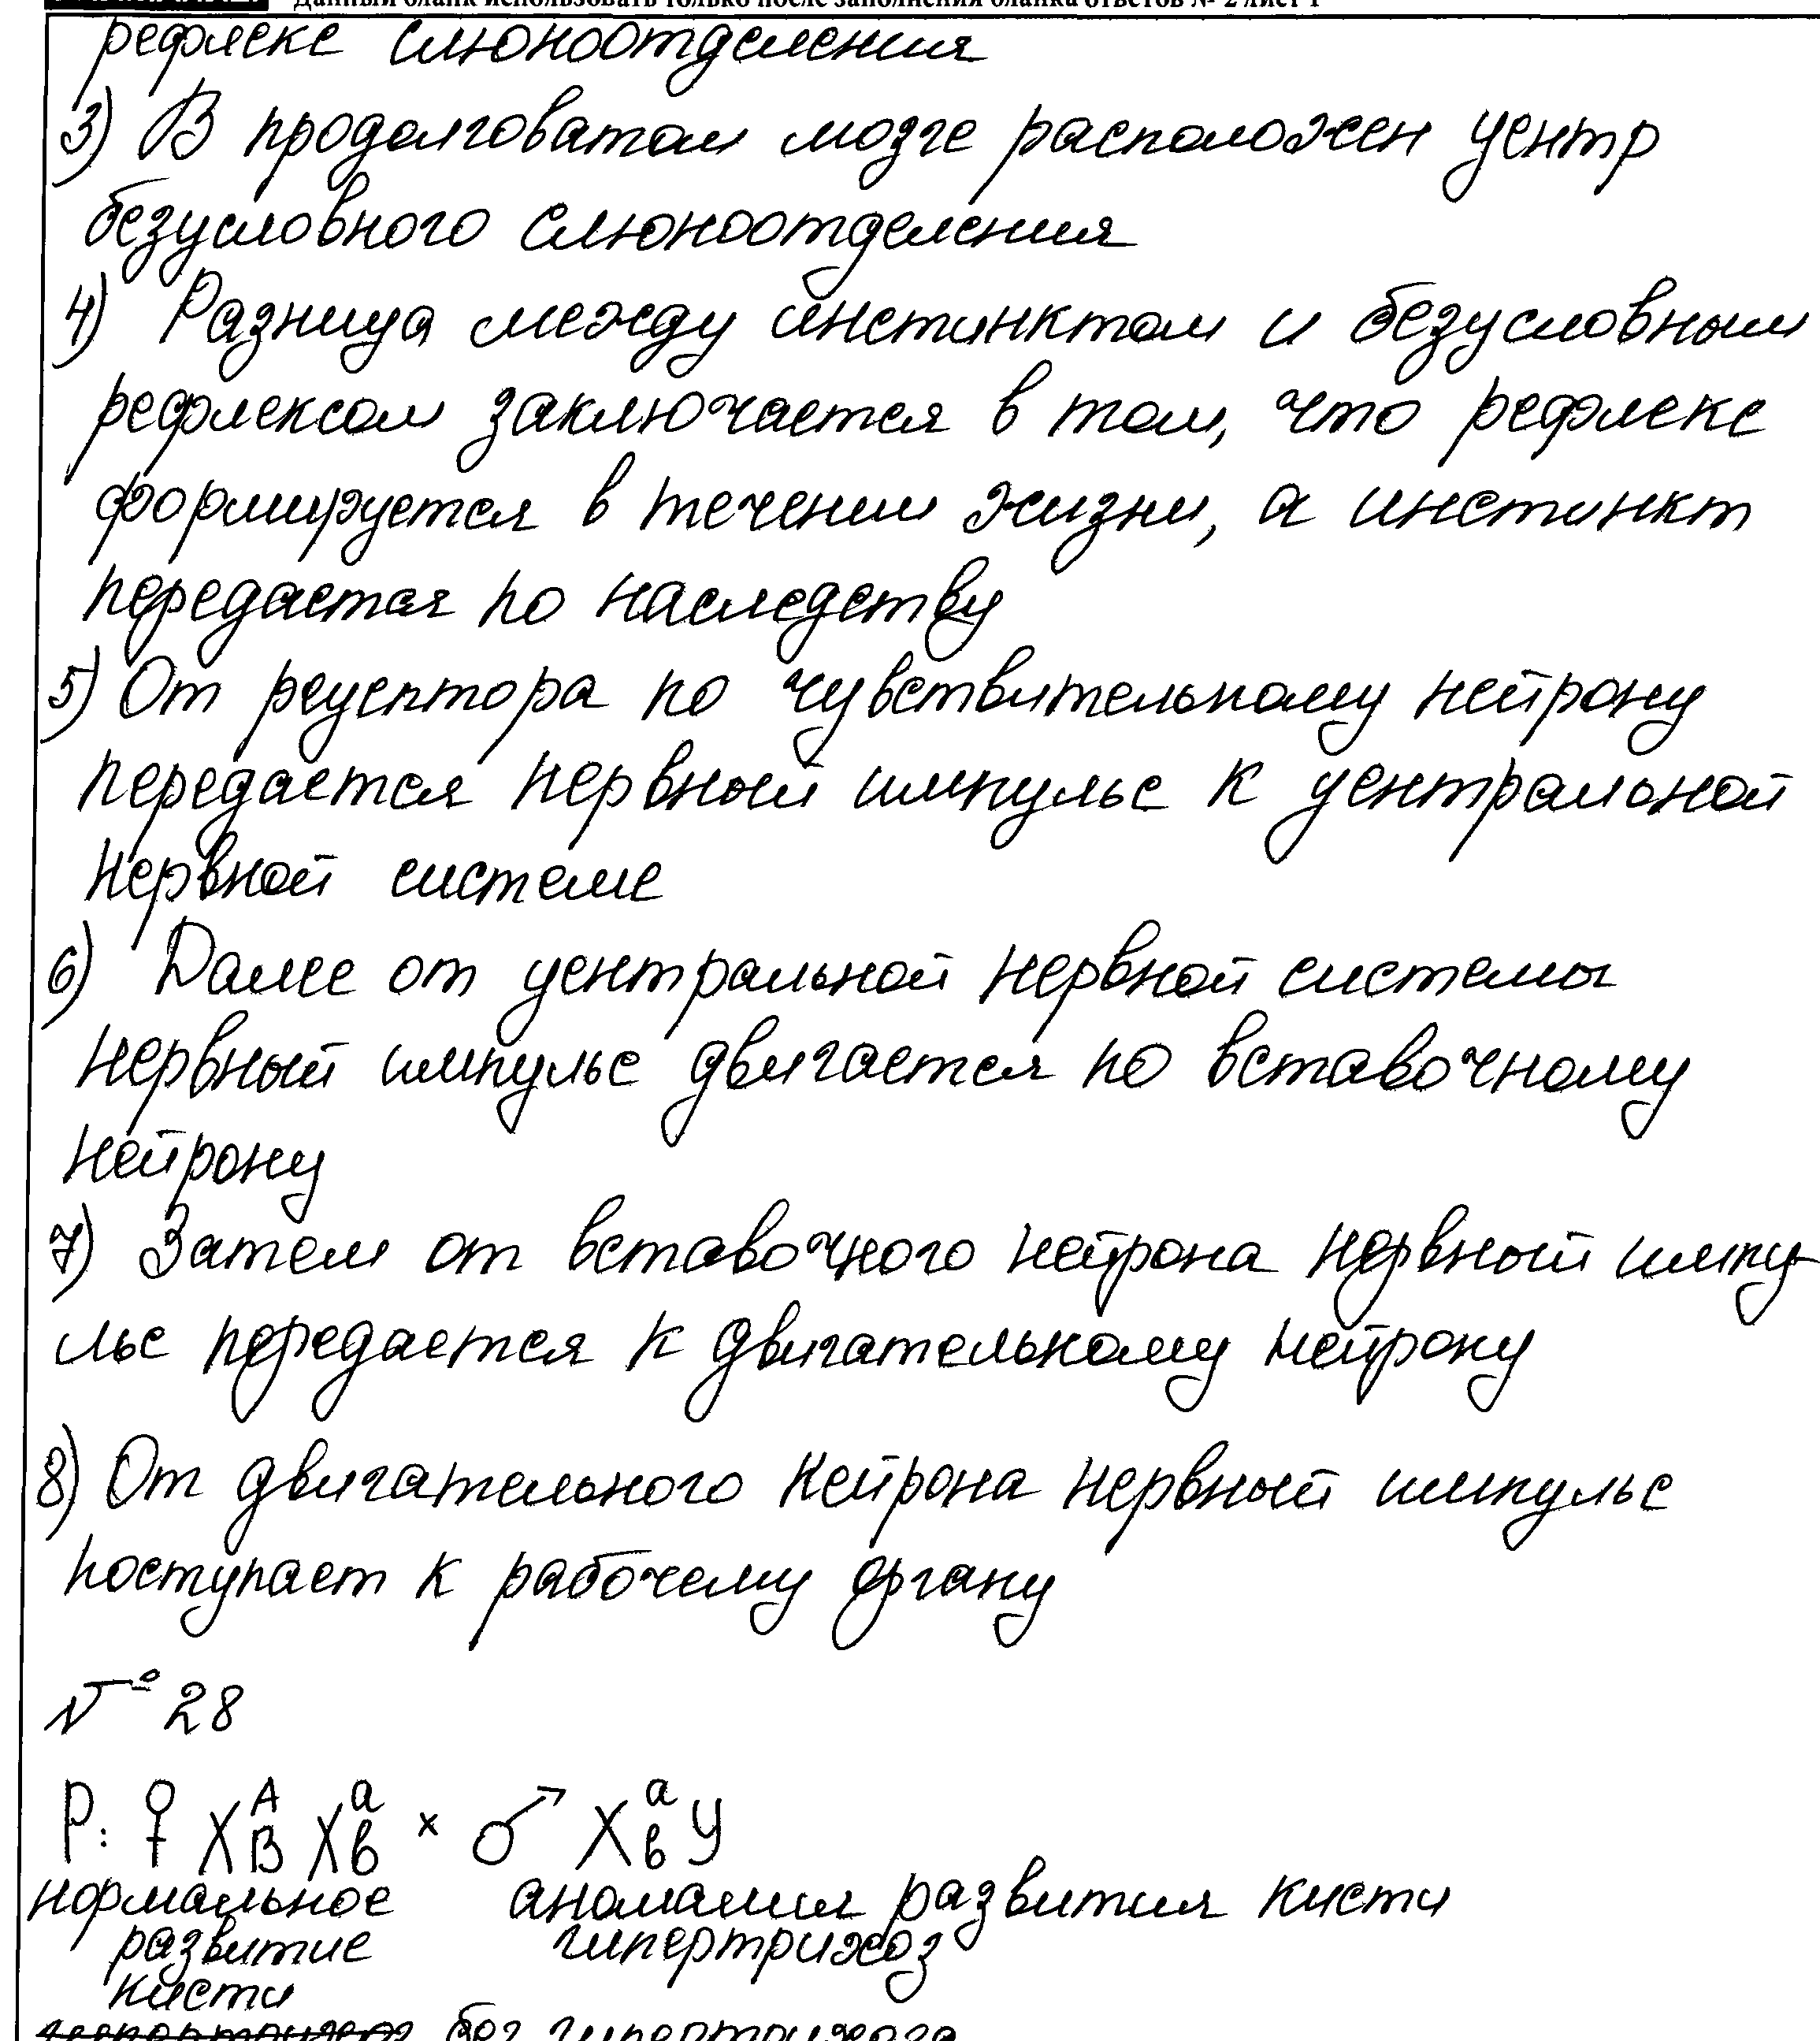 Данный бланк использовать только после заполнения бланка ответов № 2 лист 1
рефлекс слюноотделения
3) В продолговатом мозге расположен центр
безусловного слюноотделения
4) Разница между инстинктом и безусловным
рефлексом заключается в том, что рефлекс
формируется в течении жизни, а инстинкт
передается по наследству
5) От рецептора по чувствительному нейрону
передается нервный импульс к центральной
нервной системе
6) Далее от центральной нервной системы
нервный импульс двигается по вставочному
нейрону
7) Затем от вставочного нейрона нервный импу-
льс передается к двигательному нейрону
8) От двигательного нейрона нервный импульс
поступает к рабочему органу
№ 28
P: ♀ X^A_B X^a_b × ♂ X^a_b У
нормальное аномалия развития кисти
развитие гипертрихоз
кисти
без гипертрихоза